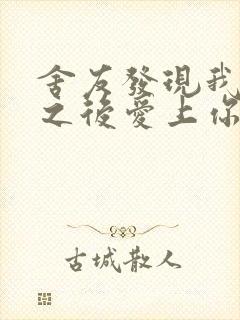 舍友發現我
之後愛上你
古城散人